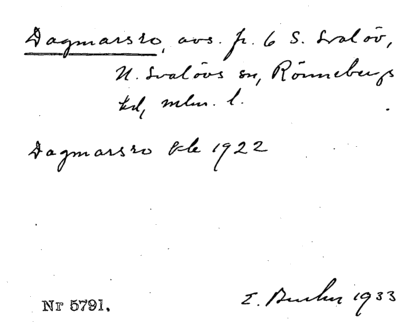 Dagmarsro, avs. fr. 6 S. Svalöv,
N. Svalövs sn, Rönnebergs
hd, mlm. l.
Dagmarsro 1922
Nr 5791.
E. 1933